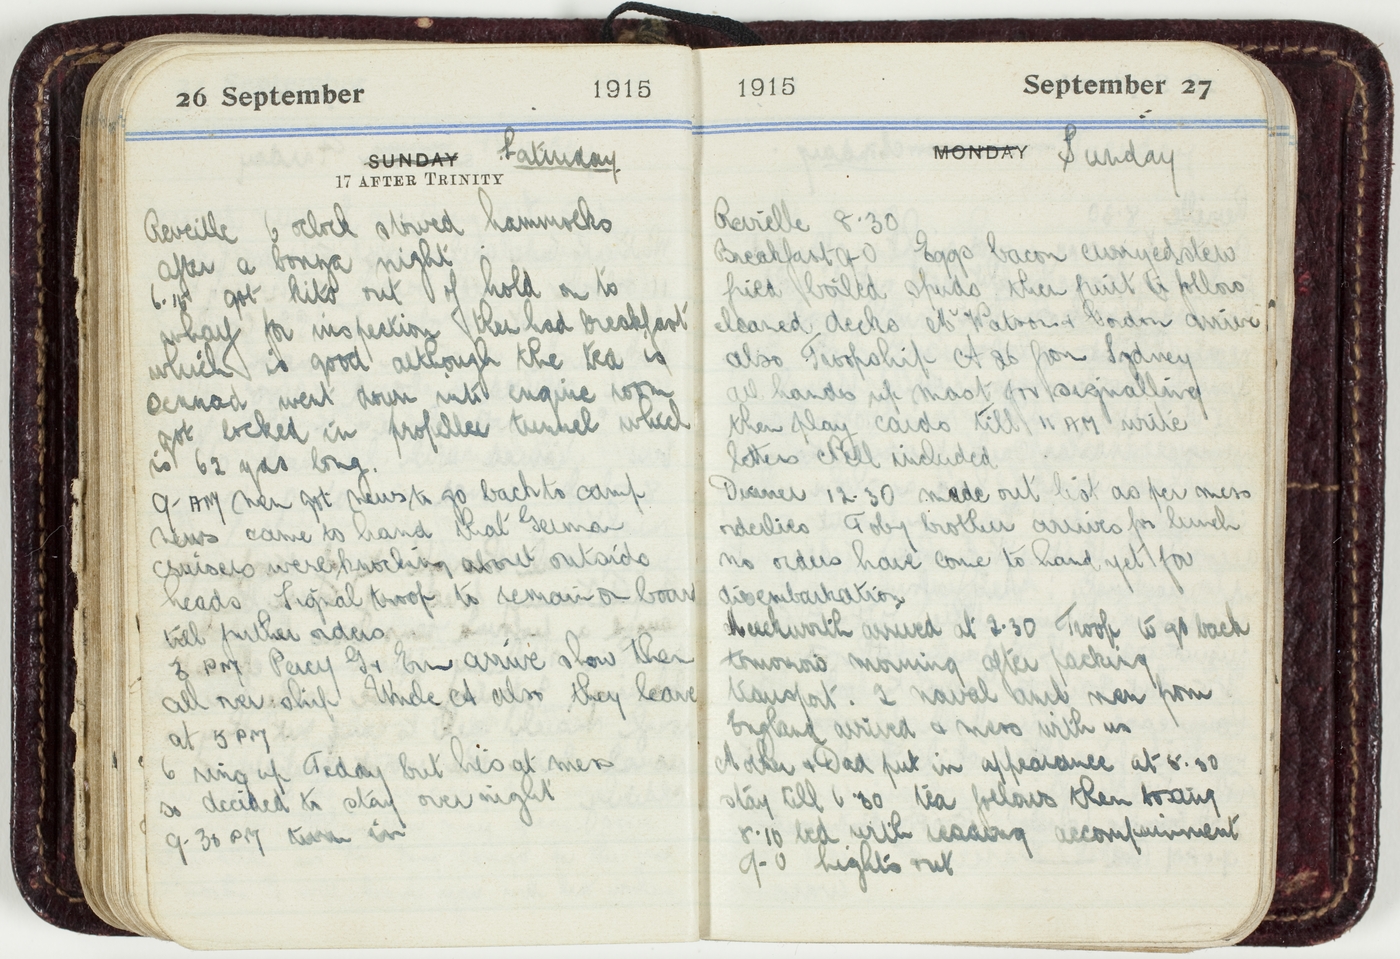 26 September 1915
SUNDAY Saturday
17 AFTER TRINITY
Reveille 6 oclock stowed hammocks
after a bonza night
6.15 got kits out of hold on to
wharf for inspection then had breakfast
which is good although the tea is
went down into engine room
got locked in propeller tunnel which
is 62 yds long.
9- AM men got news to go back to camp
news came to hand that German
cruisers were knocking about outside
heads Signal troop to remain on board
till further orders
3 PM Percy G + Ern arrive show them
all over ship Uncle A also they leave
at 5 PM
6 ring up Teday but he's at mess
so decided to stay over night
9-30 PM turn in
1915 September 27
MONDAY Sunday
Revielle 8.30
Breakfast 9-0 Eggs bacon curryed stew
fried / boiled spuds then fruit to follow
cleared decks Watson + Gordon arrive
also Troopship A 26 from Sydney
all hands up mast for signalling
then play cards till 11 AM write
letters Nell included
Dinner 12.30 made out list as per mess
orderlies Toby brother arrives for lunch
no orders have come to hand yet for
disembarkation
arrived at 2.30 Troop to go back
tomorrow morning after packing
transport. 2 naval and men from
England arrived & mess with us
Mother + Dad put in appearance at 5.30
stay till 6.30 tea follows then boxing
8.10 bed with reading accompainment
9-0 lights out